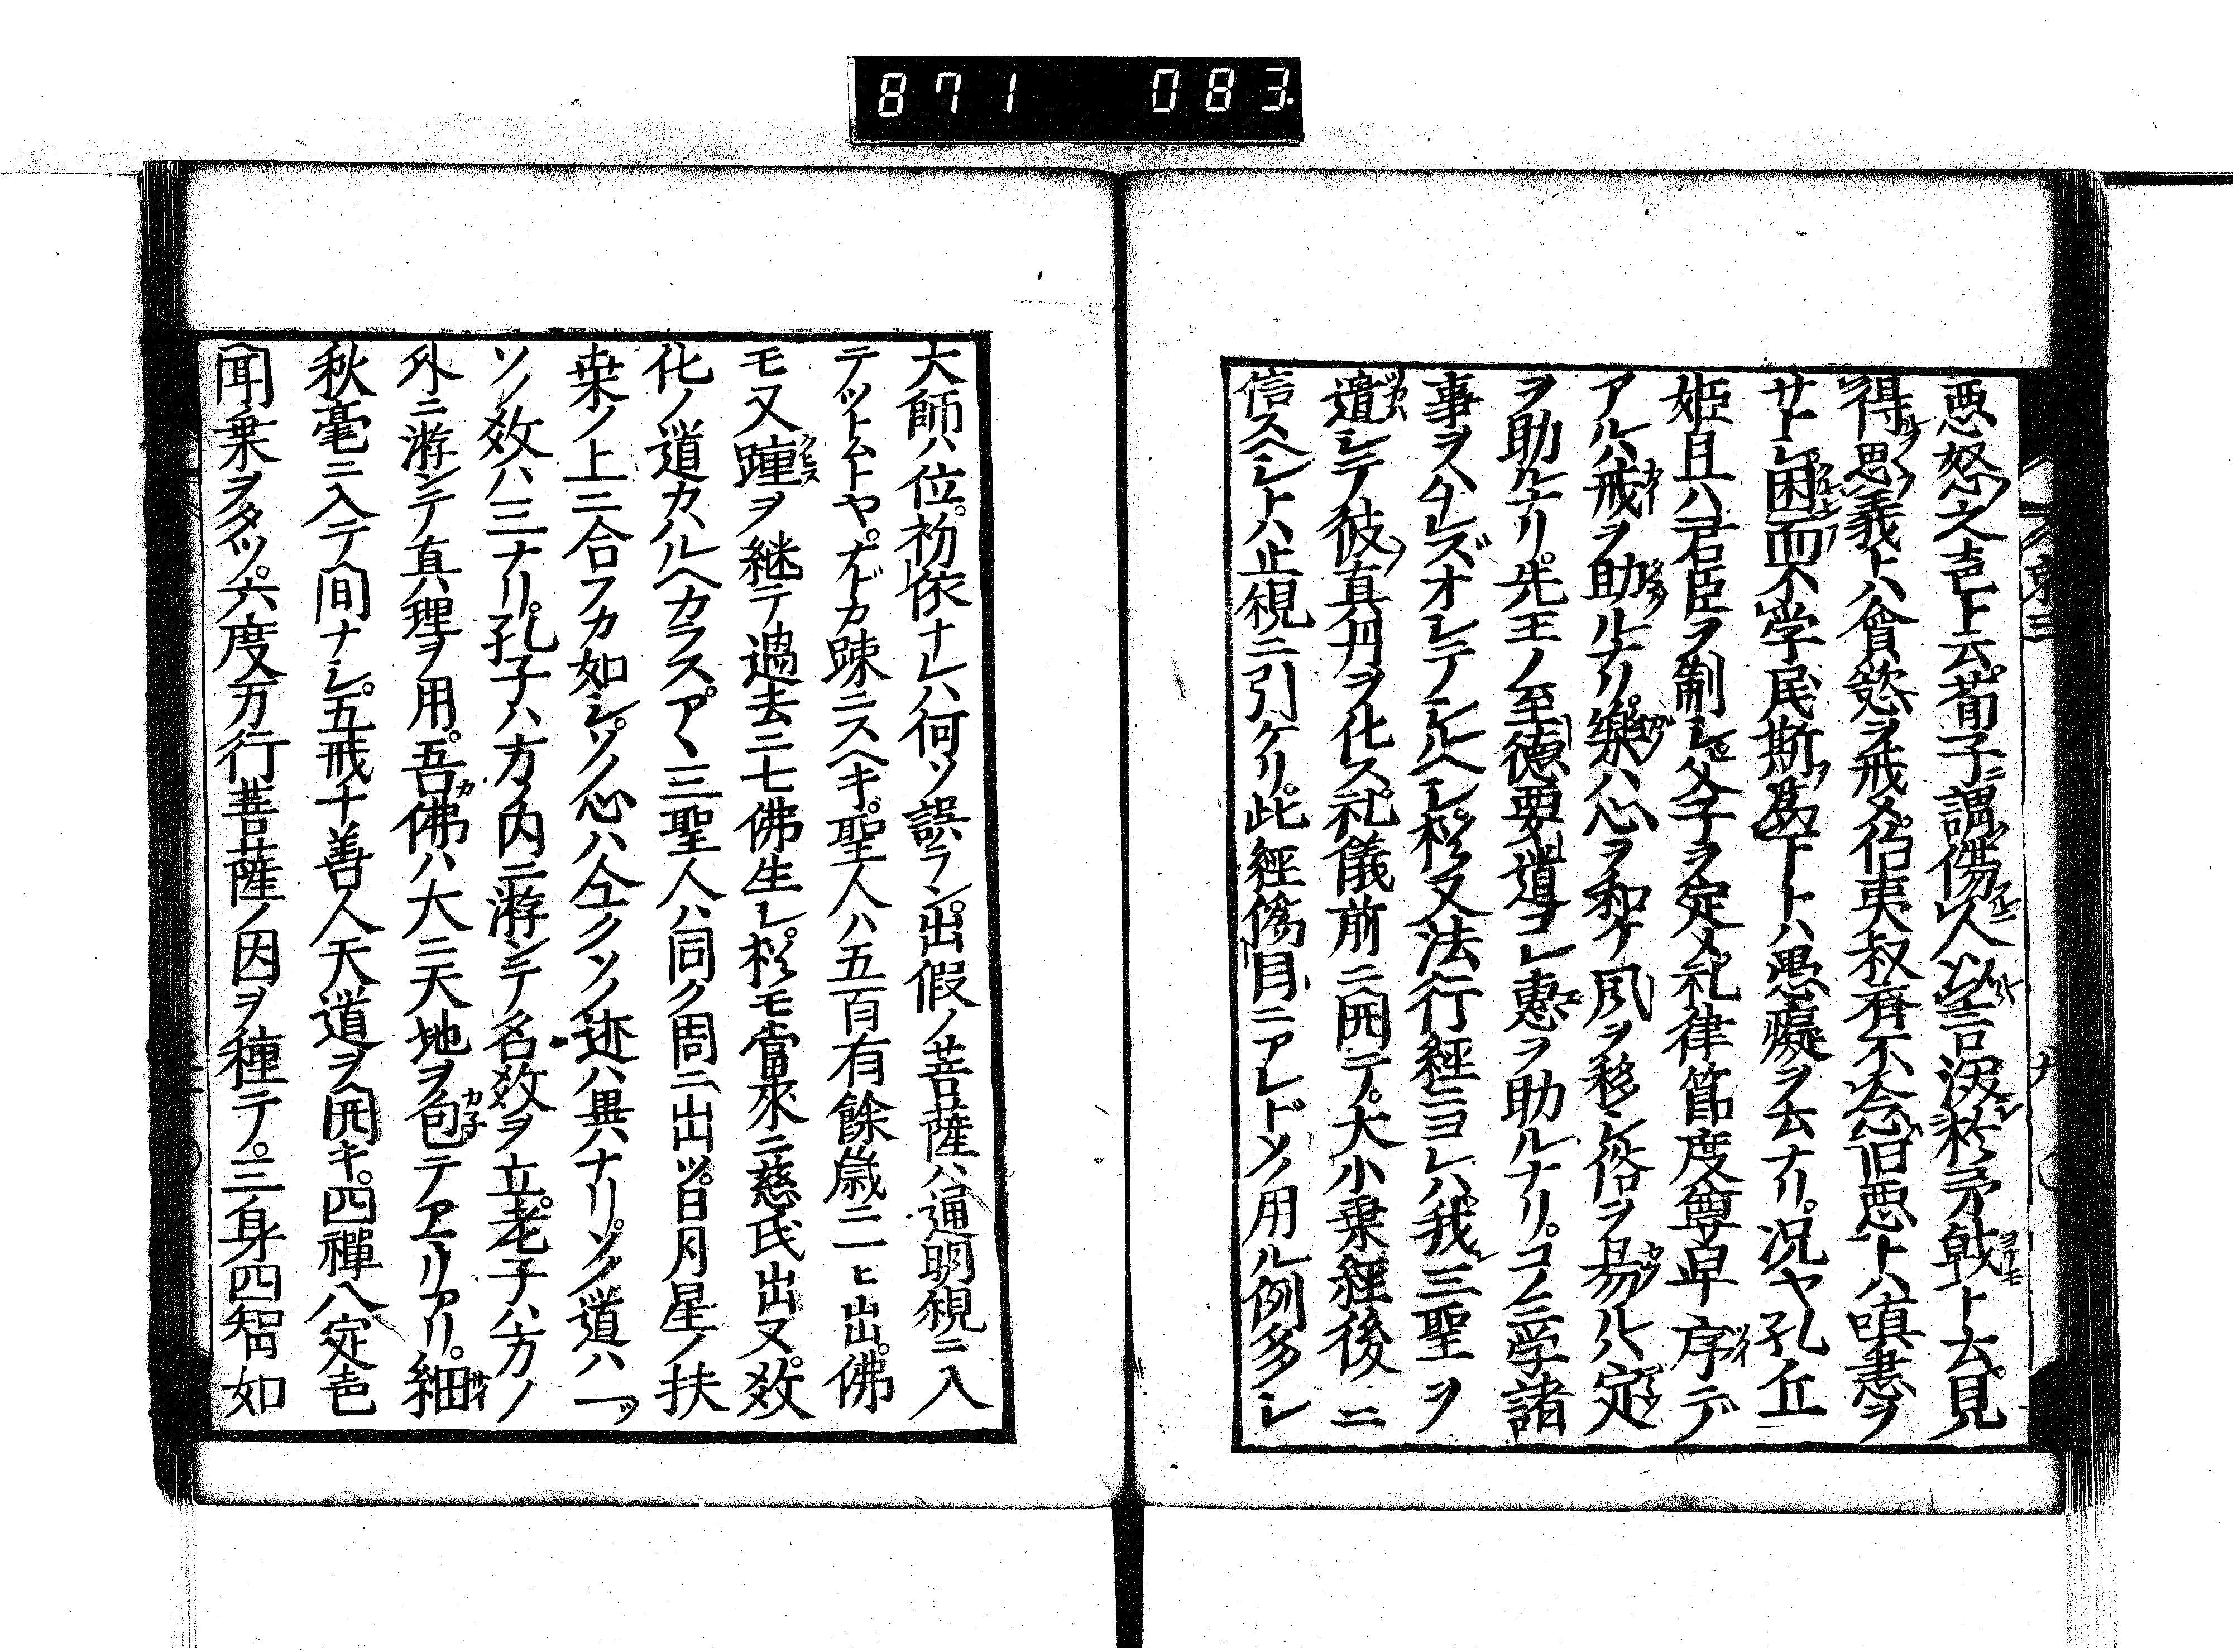 871 083
悪怒之声ト云。荀子ニ謂傷人以言深於矛戟ト云。見
得思義トハ貪慾ヲ戒メ。伯夷叔齊不念旧悪トハ嗔恚ヲ
サトシ。困而不学民斯為下トハ愚癡ヲ去ナリ。況ヤ孔丘
姫且ハ君臣ヲ制シ。父子ヲ定メ。礼律節度尊卑序デ
アルハ戒ヲ助ルナリ。樂ハ心ヲ和ケ風ヲ移シ俗ヲ易ルハ定
ヲ助ルナリ。先王ノ至德要道コレ惠ヲ助ルナリ。コノ三学諸
事ヲハタレズオシテシルヘシ。於又法行經ニヨレハ。我三聖ヲ
遣シテ彼真丹ヲ化ス。礼儀前ニ開テ。大小乗経後ニ
信スヘシトハ止観ニ引ケリ。此經偽目ニアレドソノ用ル例多シ
大師ハ位。初依ナレハ何ソ誤ラン。出假ノ菩薩ハ通明観ニ入
テツトムトヤ。ナドカ疎ニスヘキ。聖人ハ五百有餘歳ニ一ヒ出。佛
モ又踵ヲ継テ過去ニ七佛生レ。於モ當來ニ慈氏出又。教
化ノ道カハルヘカラス。アヽ三聖人ハ同ク周ニ出ツ。日月星ノ扶
桒ノ上ニ合フカ如シ。ソノ心ハ仝クソノ迹ハ異ハナリ。ソノ道ハ一ツ
ソノ教ハ三ナリ。孔子ハ方ノ内ニ游シテ名教ヲ立。老子ハ方ノ
外ニ游シテ真理ヲ用。吾佛ハ大ニ天地ヲ包テアエリアリ。細
秋毫ニ入テ間ナシ。五戒十善人天道ヲ開キ。四禪八定声
聞乗ヲタツ。六度万行菩薩ノ因ヲ種テ。三身四智如